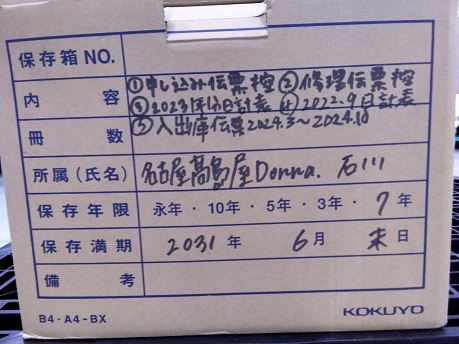 保存箱NO.
内容 ①申し込み伝票控 ②修理伝票控
③2023年分日計表 ④2022.9日計表
冊数 ⑤入出庫伝票2024.3~2024.10
所属(氏名) 名古屋高島屋Donna. 石川
保存年限 永年・10年・5年・3年・7年
保存満期 2031年 6月 末日
備考
B4・A4-BX KOKUYO